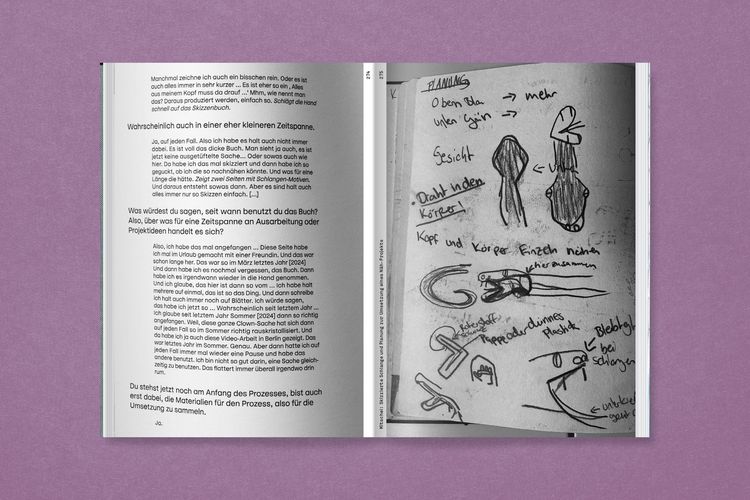 Manchmal zeichne ich auch ein bisschen rein. Oder es ist
auch alles immer in sehr kurzer ... Es ist eher so ein ‚Alles
aus meinem Kopf muss da drauf ...‘ Mhm, wie nennt man
das? Daraus produziert werden, einfach so. Schlägt die Hand
schnell auf das Skizzenbuch.
Wahrscheinlich auch in einer eher kleineren Zeitspanne.
Ja, auf jeden Fall. Also ich habe es halt auch nicht immer
dabei. Es ist voll das dicke Buch. Man sieht ja auch, es ist
jetzt keine ausgetüftelte Sache... Oder sowas auch wie
hier. Da habe ich das mal skizziert und dann habe ich so
geguckt, ob ich die so nachnähen könnte. Und was für eine
Länge die hätte. Zeigt zwei Seiten mit Schlangen-Motiven.
Und daraus entsteht sowas dann. Aber es sind halt auch
alles immer nur so Skizzen einfach. [...]
Was würdest du sagen, seit wann benutzt du das Buch?
Also, über was für eine Zeitspanne an Ausarbeitung oder
Projektideen handelt es sich?
Also, ich habe das mal angefangen ... Diese Seite habe
ich mal im Urlaub gemacht mit einer Freundin. Und das war
schon lange her. Das war so im März letztes Jahr [2024]
Und dann habe ich es nochmal vergessen, das Buch. Dann
habe ich es irgendwann wieder in die Hand genommen.
Und ich glaube, das hier ist dann so vom ... Ich habe halt
mehrere auf einmal, das ist so das Ding. Und dann schreibe
ich halt auch immer noch auf Blätter. Ich würde sagen,
das habe ich jetzt so ... Wahrscheinlich seit letztem Jahr ...
ich glaube seit letztem Jahr Sommer [2024] dann so richtig
angefangen. Weil, diese ganze Clown-Sache hat sich dann
auf jeden Fall so im Sommer richtig rauskristallisiert. Und
da habe ich ja auch diese Video-Arbeit in Berlin gezeigt. Das
war letztes Jahr im Sommer. Genau. Aber dann hatte ich auf
jeden Fall immer mal wieder eine Pause und habe das
andere benutzt. Ich bin nicht so gut darin, eine Sache gleich-
zeitig zu benutzen. Das flattert immer überall irgendwo drin
rum.
Du stehst jetzt noch am Anfang des Prozesses, bist auch
erst dabei, die Materialien für den Prozess, also für die
Umsetzung zu sammeln.
Ja.
274
275
Skizzierte Schlange und Planung zur Umsetzung eines Näh-Projekts
PLANUNG
Oben Bla → mehr
unten Grün →
Gesicht
← Unten
Draht in den
Körper!
Kopf und Körper Einzeln nähen
hier zusammen
Pappe oder dünnes
Plastik
bei
Schlangen